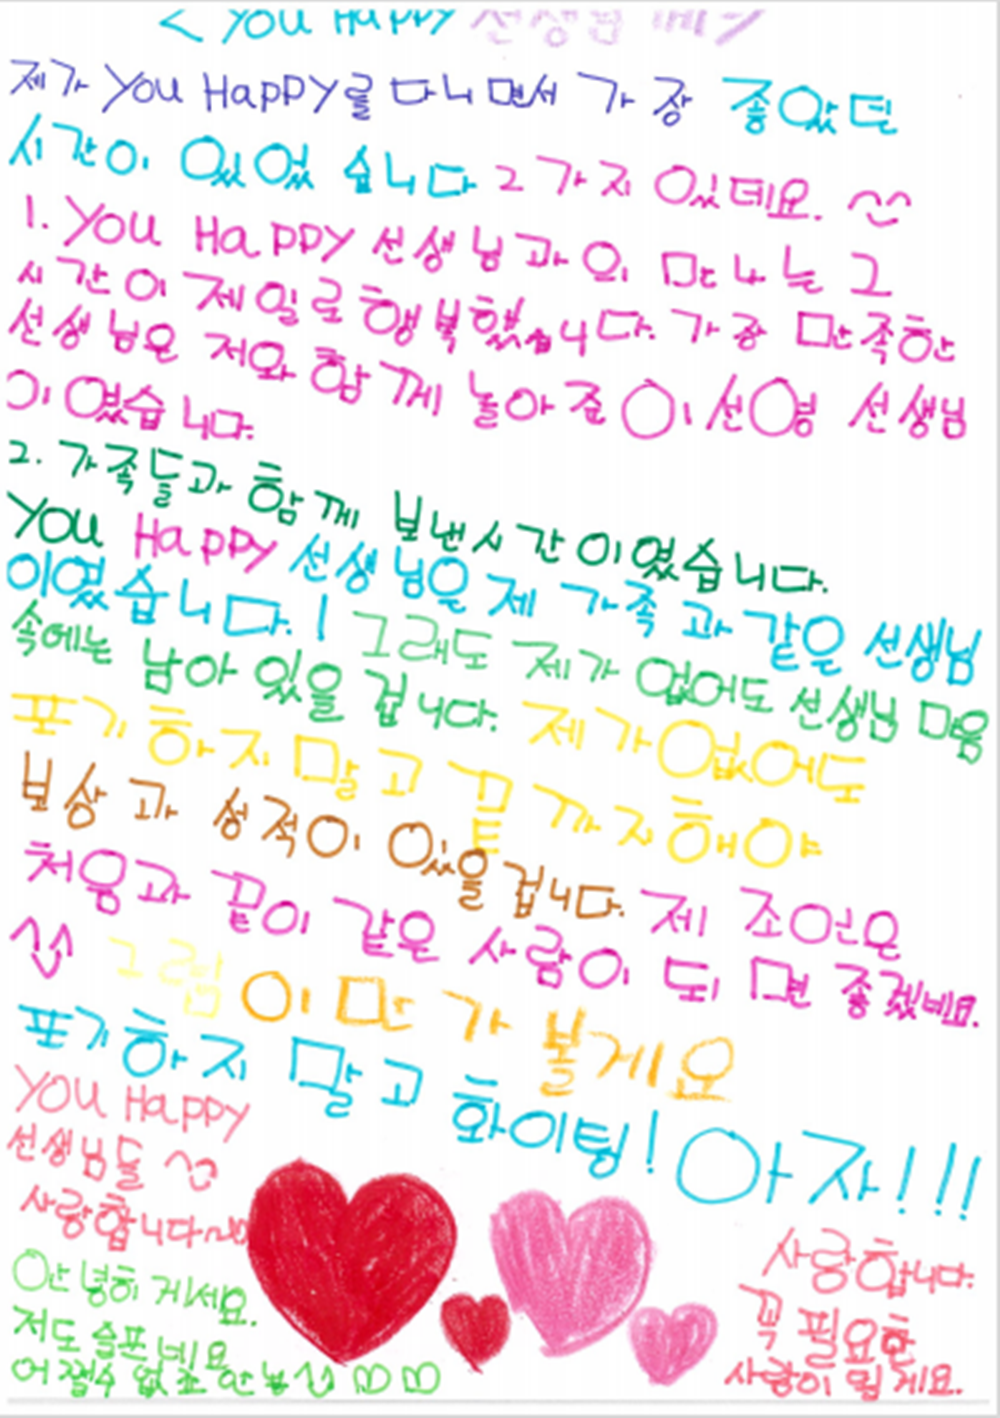 <You Happy 선생님께>
제가 You Happy를 다니면서 가장 좋았던
시간이 있었습니다 2가지 있데요. ^^
1. You Happy 선생님과의 만나는 그
시간이 제일로 행복했습니다. 가장 만족한
선생님은 저와 함께 놀아준 이선영 선생님
이였습니다.
2. 가족들과 함께 보낸시간이였습니다.
You Happy 선생님은 제 가족과 같은 선생님
이였습니다.! 그래도 제가 없어도 선생님 마음
속에는 남아 있을 겁니다. 제가없어도
포기하지말고 끝까지해야
보상과 성적이 있을겁니다. 제 조언은
처음과 끝이 같은 사람이 되면 좋겠네요.
^^ 그럼 이만 가볼게요
포기하지 말고 화이팅! 아자!!!
You Happy
선생님들 ^^
사랑합니다~
안녕히 게세요.
저도 슬프네요
어쩔수 없죠 안뇽^^
사랑합니다.
꼭 필요한
사람이 될게요.